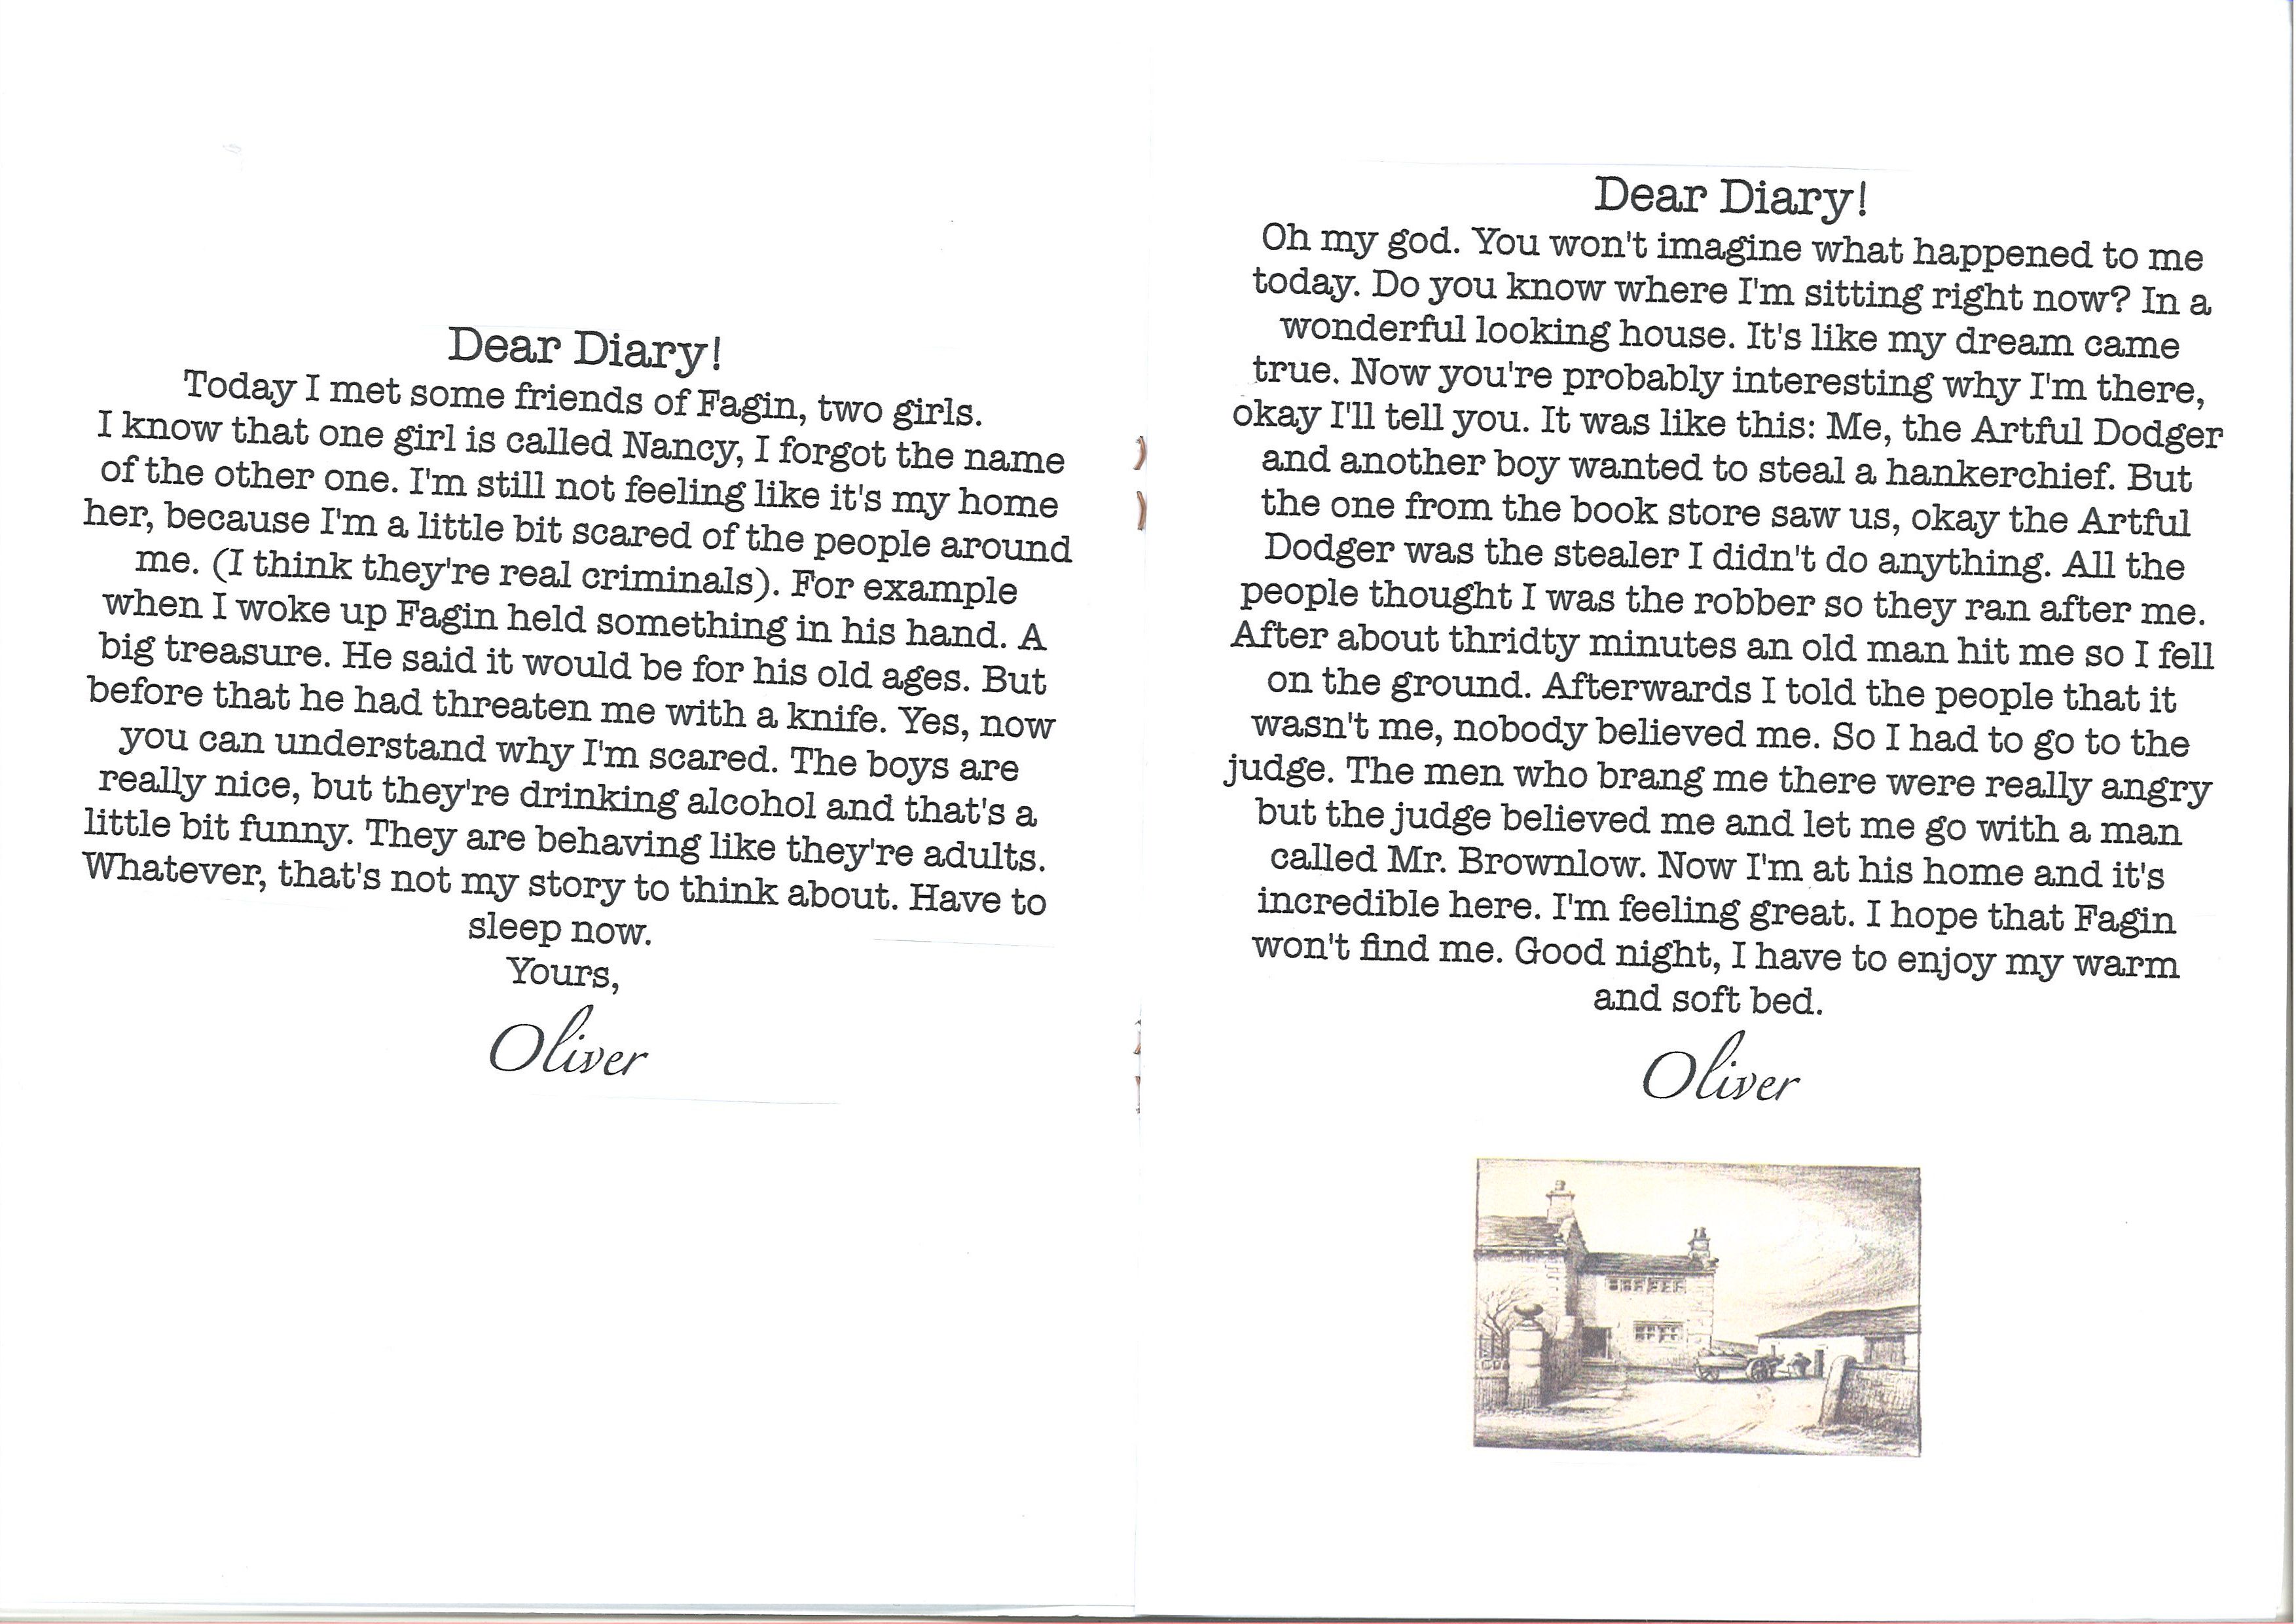 Dear Diary!
Today I met some friends of Fagin, two girls.
I know that one girl is called Nancy, I forgot the name
of the other one. I'm still not feeling like it's my home
her, because I'm a little bit scared of the people around
me. (I think they're real criminals). For example
when I woke up Fagin held something in his hand. A
big treasure. He said it would be for his old ages. But
before that he had threaten me with a knife. Yes, now
you can understand why I'm scared. The boys are
really nice, but they're drinking alcohol and that's a
little bit funny. They are behaving like they're adults.
Whatever, that's not my story to think about. Have to
sleep now.
Yours,
Oliver
Dear Diary!
Oh my god. You won't imagine what happened to me
today. Do you know where I'm sitting right now? In a
wonderful looking house. It's like my dream came
true. Now you're probably interesting why I'm there,
okay I'll tell you. It was like this: Me, the Artful Dodger
and another boy wanted to steal a hankerchief. But
the one from the book store saw us, okay the Artful
Dodger was the stealer I didn't do anything. All the
people thought I was the robber so they ran after me.
After about thridty minutes an old man hit me so I fell
on the ground. Afterwards I told the people that it
wasn't me, nobody believed me. So I had to go to the
judge. The men who brang me there were really angry
but the judge believed me and let me go with a man
called Mr. Brownlow. Now I'm at his home and it's
incredible here. I'm feeling great. I hope that Fagin
won't find me. Good night, I have to enjoy my warm
and soft bed.
Oliver